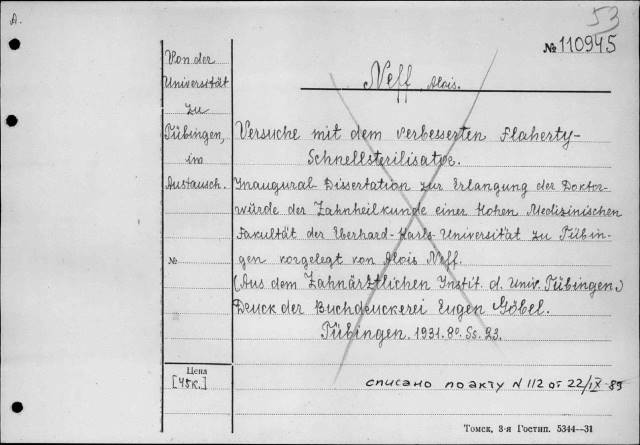 A.
53
№ 110945
Von der
Universität
zu
Tübingen,
im
Austausch.
№
Цена
[45к.]
Neff, Alois.
Versuche mit dem verbesserten Flaherty-
Schnellsterilisator.
Inaugural-Dissertation zur Erlangung der Doktor-
würde der Zahnheilkunde einer Hohen Medizinischen
Fakultät der Eberhard-Karls-Universität zu Tübin-
gen vorgelegt von Alois Neff.
(Aus dem Zahnärztlichen Instit. d. Univ. Tübingen.)
Druck der Buchdruckerei Eugen Göbel.
Tübingen. 1931. 8º. Ss. 23.
списано по акту N 112 от 22/IX-89
Томск, 3-я Гостип. 5344—31